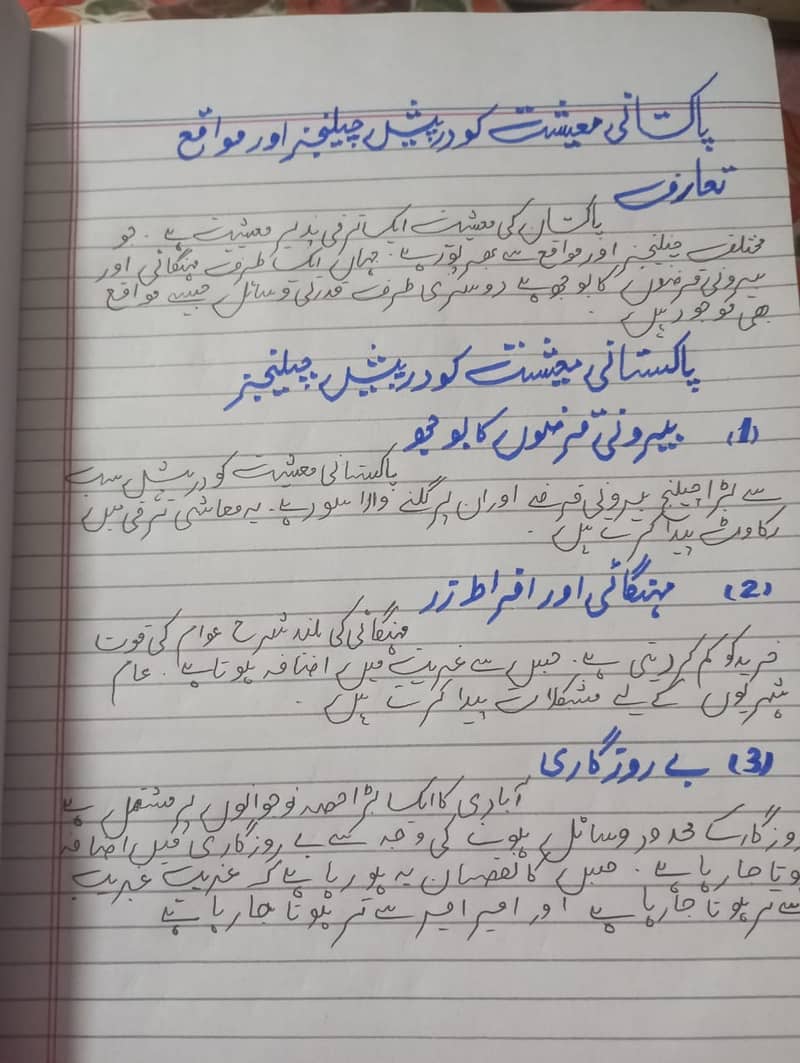 پاکستانی معیشت کو درپیش چیلنجز اور مواقع
تعارف
پاکستان کی معیشت ایک ترقی پذیر معیشت ہے۔ جو
مختلف چیلنجز اور مواقع سے بھرپور ہے۔ جہاں ایک طرف مہنگائی اور
بیرونی قرضوں کا بوجھ ہے دوسری طرف قدرتی وسائل جیسے مواقع
بھی موجود ہیں۔
پاکستانی معیشت کو درپیش چیلنجز
(1) بیرونی قرضوں کا بوجھ
پاکستانی معیشت کو درپیش سب
سے بڑا چیلنج بیرونی قرضے اور ان پر لگنے والا سود ہے۔ یہ معاشی ترقی میں
رکاوٹ پیدا کرتے ہیں۔
(2) مہنگائی اور افراط زر
مہنگائی کی بلند شرح عوام کی قوت
خرید کو کم کر دیتی ہے۔ جس سے غربت میں اضافہ ہوتا ہے۔ عام
شہریوں کے لیے مشکلات پیدا کرتے ہیں۔
(3) بے روزگاری
آبادی کا ایک بڑا حصہ نوجوانوں پر مشتمل ہے
روزگار کے محدود وسائل ہونے کی وجہ سے بے روزگاری میں اضافہ
ہوتا جا رہا ہے۔ جس کا نقصان یہ ہو رہا ہے کہ غریب غریب
سے تر ہوتا جا رہا ہے اور امیر امیر سے تر ہوتا جا رہا ہے